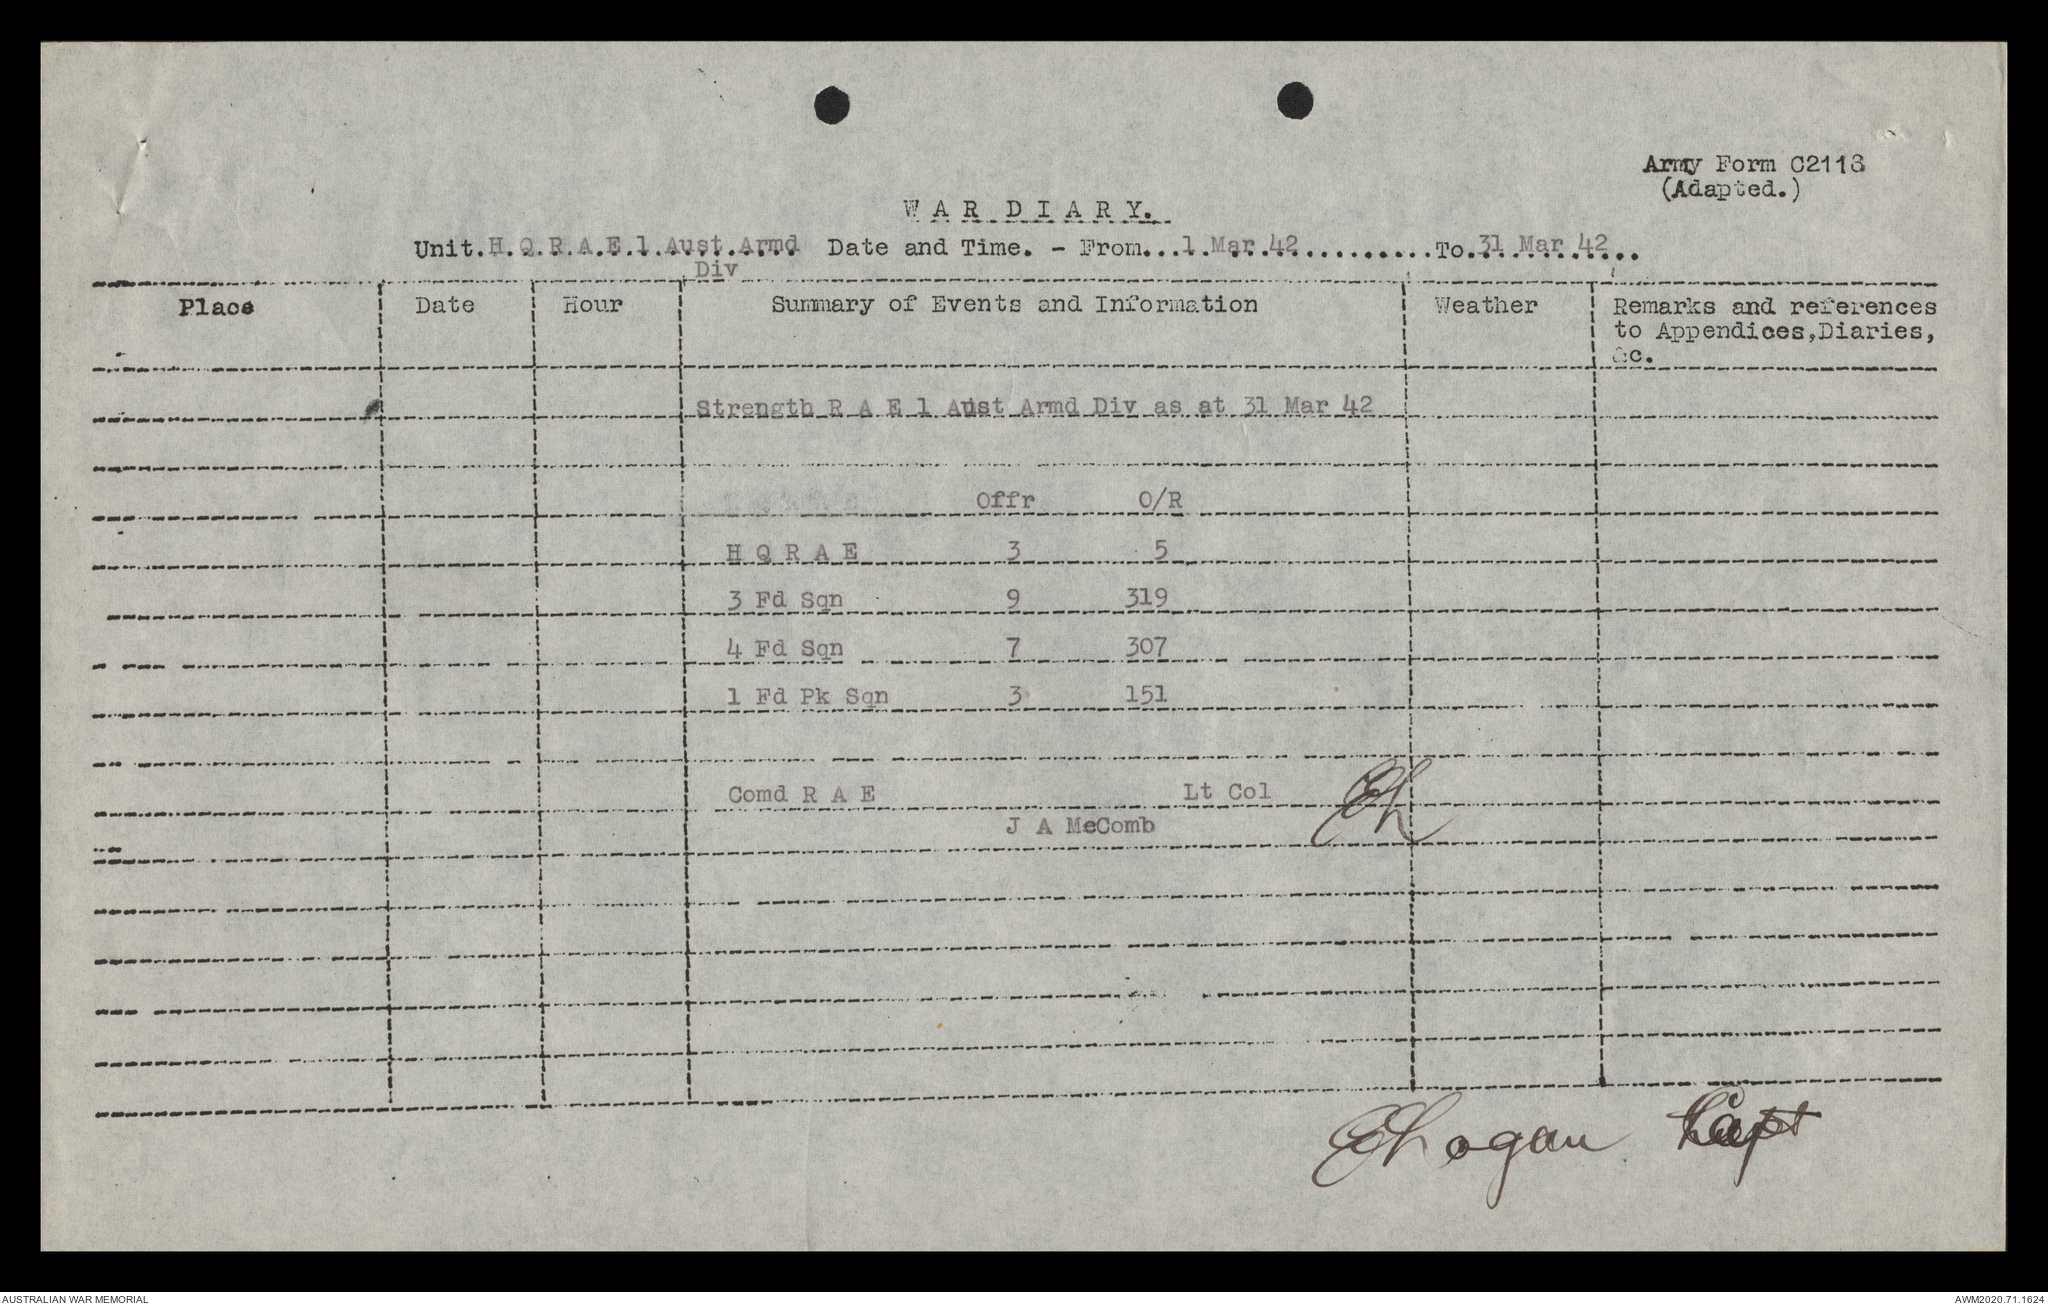 Army Form C2118
(Adapted.)
WAR DIARY.
Unit.H.Q.R.A.E.1.Aust.Armd Div Date and Time. - From...1 Mar 42............To.31 Mar 42..
Place Date Hour Summary of Events and Information Weather Remarks and references to Appendices,Diaries, &c.
Strength R A E 1 Aust Armd Div as at 31 Mar 42
Offr O/R
H Q R A E 3 5
3 Fd Sqn 9 319
4 Fd Sqn 7 307
1 Fd Pk Sqn 3 151
Comd R A E Lt Col
J A McComb
EH
EHogan Capt
AUSTRALIAN WAR MEMORIAL
AWM2020.71.1624